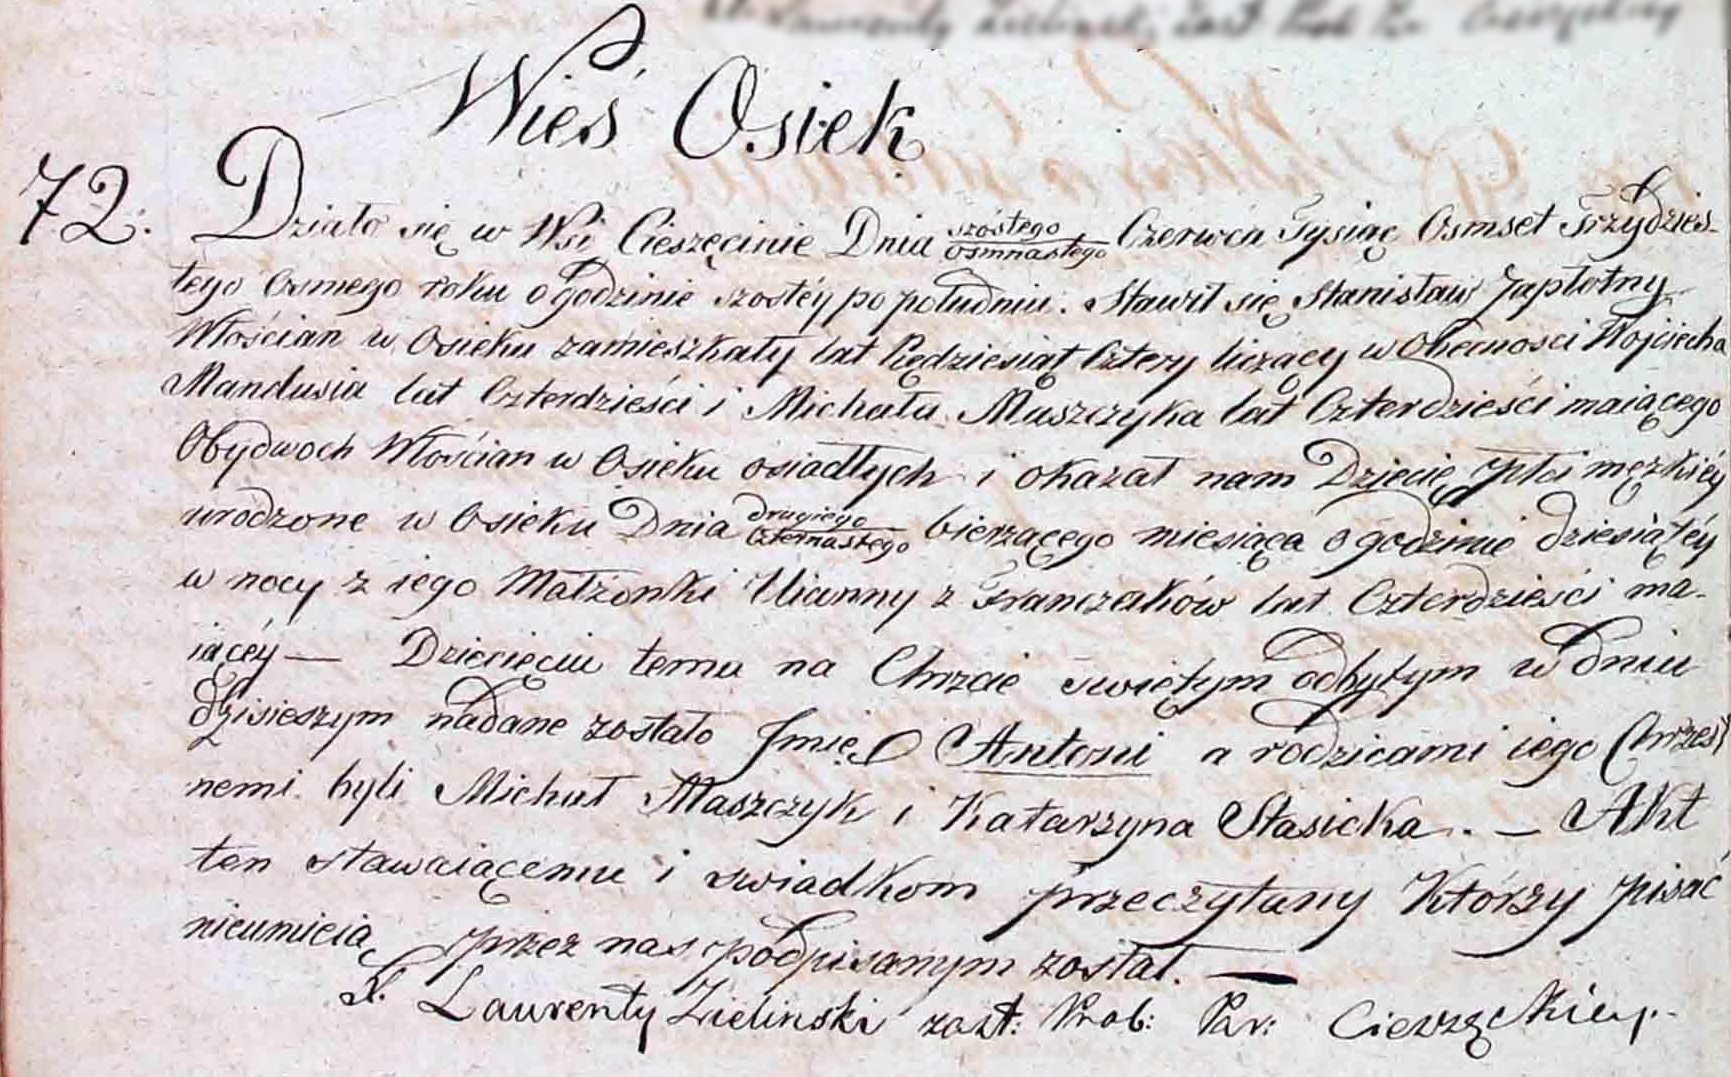 Wieś Osiek
72. Działo się w Wsi Cieszęcinie Dnia szóstego/osmnastego Czerwca Tysiąc Osmset Trzydzies-
tego Osmego roku o godzinie szostéy po południu. Stawił się Stanisław Zapłotny
Włościan w Osieku zamieszkały lat Pędziesiąt Cztery liczący w obecności Wojciecha
Mandusia lat Czterdzieści i Michała Maszczyka lat Czterdzieści maiącego
Obydwoch Włościan w Osieku osiadłych i okazał nam Dziecię płci męzkiéy
urodzone w Osieku Dnia drugiego/czternastego bierzącego miesiąca o godzinie dziesiątéy
w nocy z iego Małżonki Maryanny z Franczaków lat Czterdzieści ma-
iącéy — Dziecięciu temu na Chrzcie swiętym odbytym w dniu
dzisieszym nadane zostało Jmię Antoni a rodzicami iego Chrzest
nemi byli Michał Maszczyk i Katarzyna Stasicka. — Akt
ten stawaiącemu i swiadkom przeczytany Którzy pisać
nieumieią przez nas podpisanym został. —
X. Laurenty Zielinski zast: Prob: Par: Cieszęckiey.